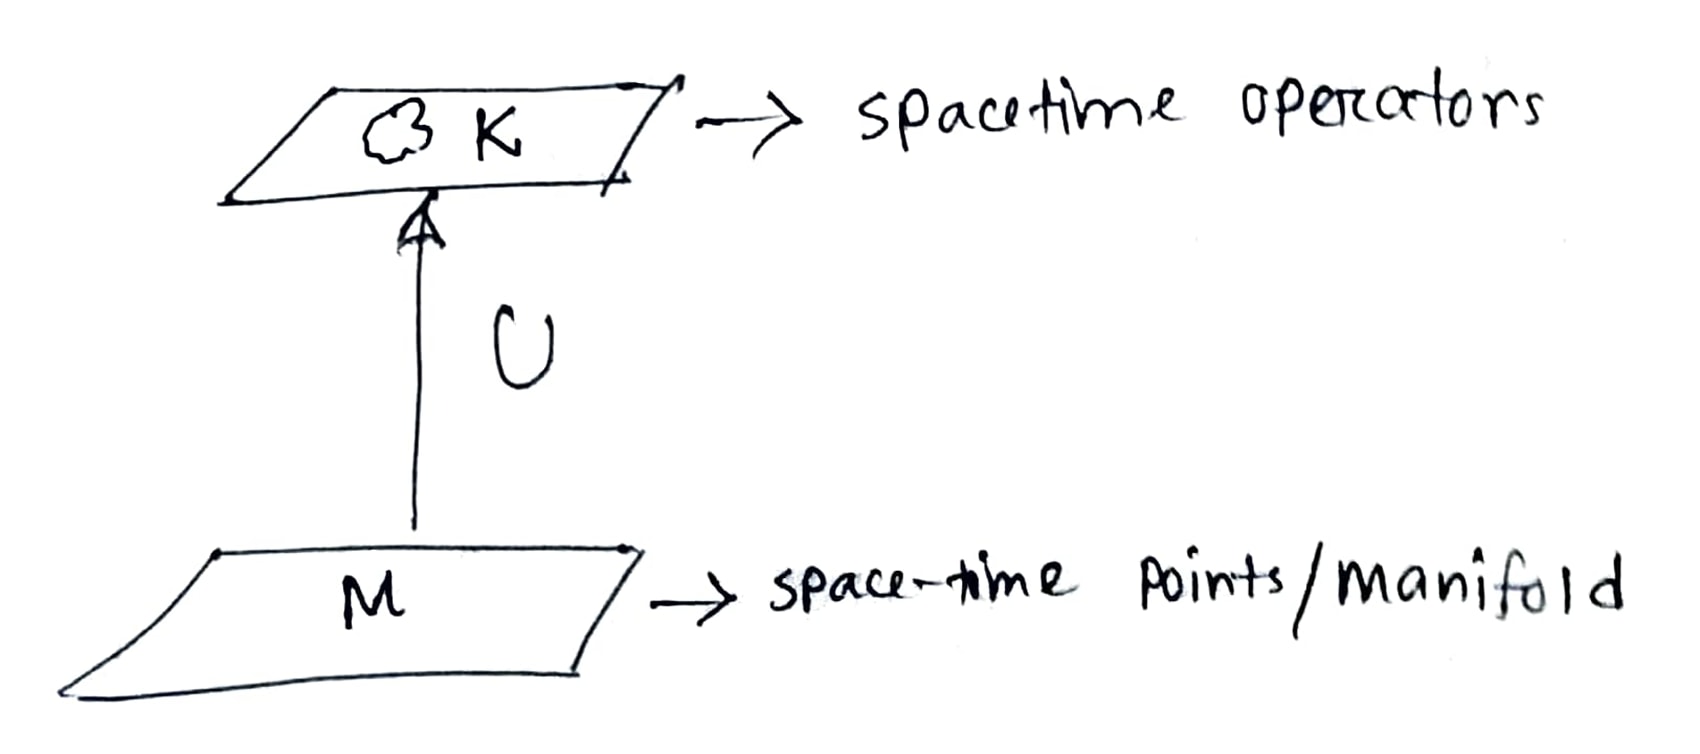 K → spacetime operators
U
M → space-time points/manifold